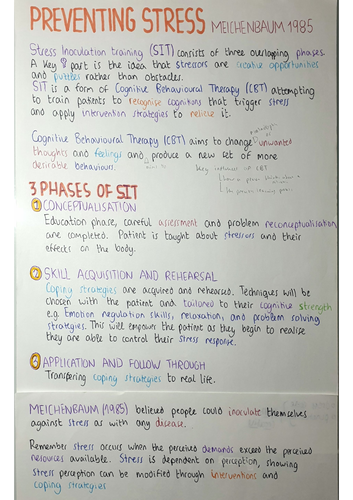 PREVENTING STRESS MEICHENBAUM 1985
Stress Inoculation training (SIT) consists of three overlapping phases.
A key part is the idea that stressors are creative opportunities
and puzzles rather than obstacles.
SIT is a form of Cognitive Behavioural Therapy (CBT) attempting
to train patients to recognise cognitions that trigger stress
and apply intervention strategies to relieve it.
Cognitive Behavioural Therapy (CBT) aims to change unwanted
thoughts and feelings and produce a new set of more
desirable behaviours.
3 PHASES OF SIT
① CONCEPTUALISATION
Education phase, careful assessment and problem reconceptualisation
are completed. Patient is taught about stressors and their
effects on the body.
② SKILL ACQUISITION AND REHEARSAL
Coping strategies are acquired and rehearsed. Techniques will be
chosen with the patient and tailored to their cognitive strength
e.g. Emotion regulation skills, relaxation, and problem solving
strategies. This will empower the patient as they begin to realise
they are able to control their stress response.
③ APPLICATION AND FOLLOW THROUGH
Transfering coping strategies to real life.
MEICHENBAUM (1985) believed people could inoculate themselves
against stress as with any disease.
Remember stress occurs when the perceived demands exceed the perceived
resources available. Stress is dependent on perception, showing
stress perception can be modified through interventions and
coping strategies